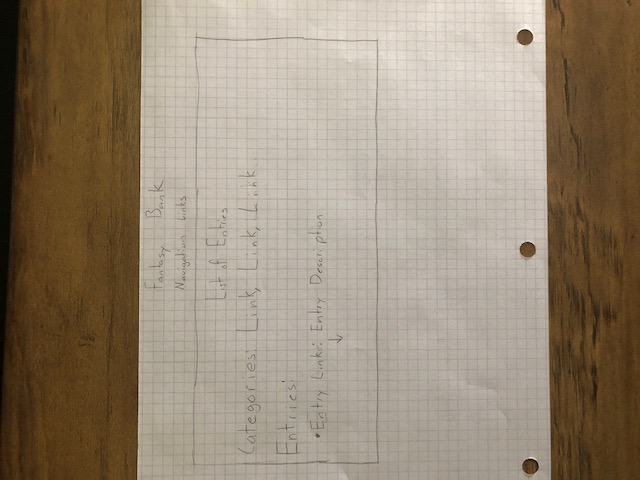 Fantasy Bank
Navigation Links
List of Entries
Categories: Link, Link, Link...
Entries:
• Entry Link: Entry Description
↓